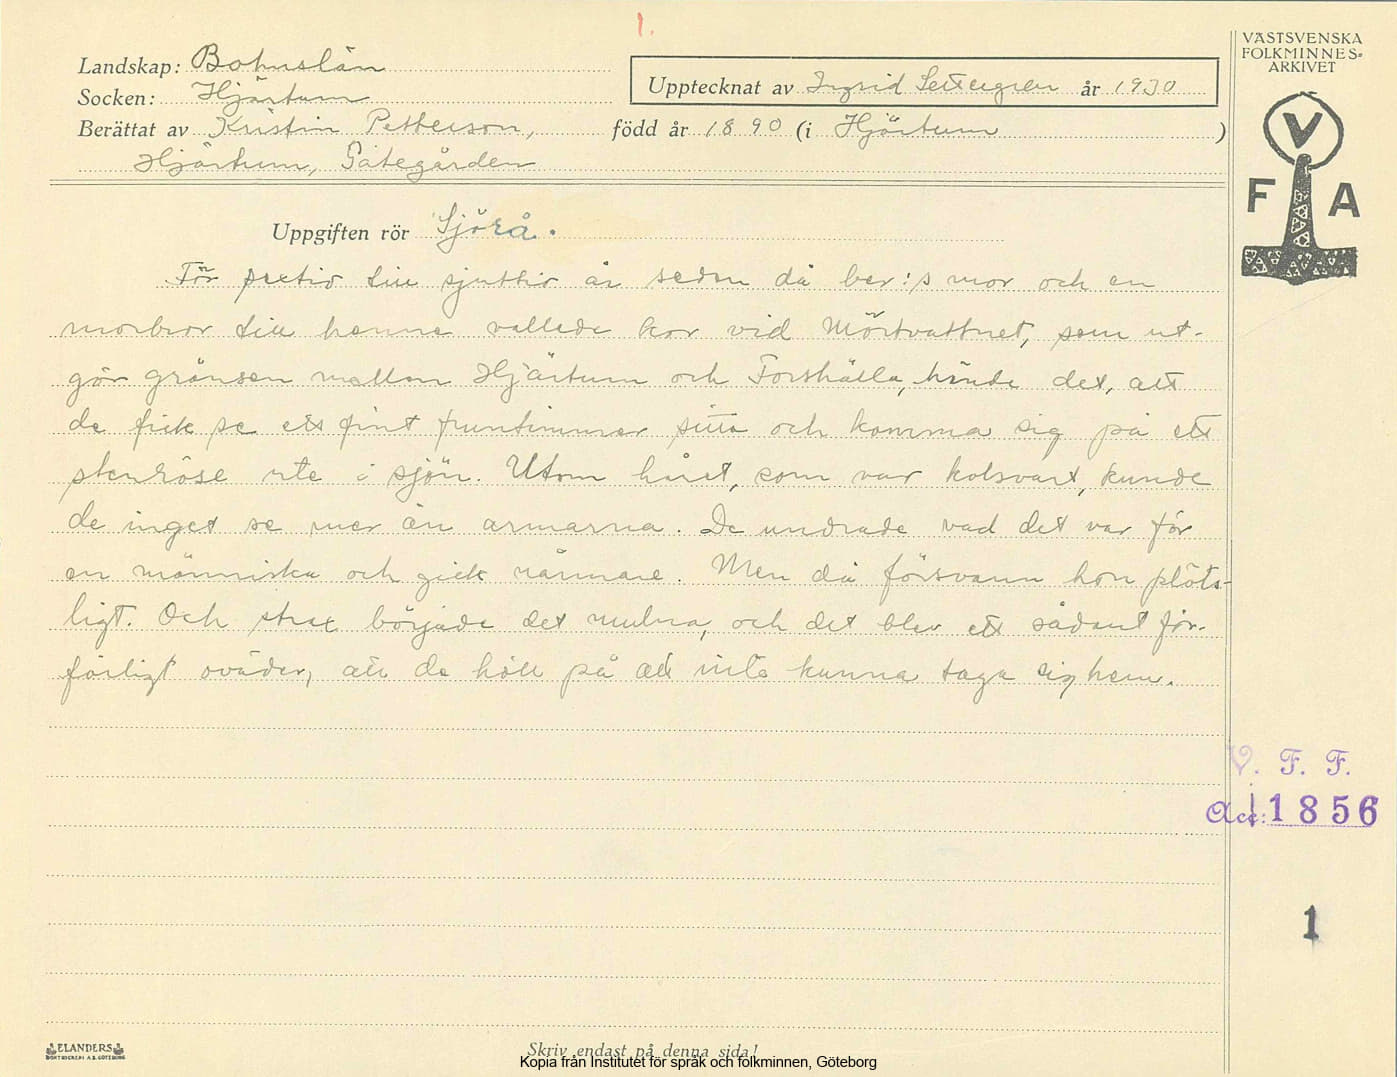 1.
VÄSTSVENSKA
FOLKMINNES-
ARKIVET
V
F A
Landskap: Bohuslän
Socken: Hjärtum
Upptecknat av Ingrid Settergren år 1930
Berättat av Kristin Petterson, född år 1890 (i Hjärtum )
Hjärtum, Gåtegården
Uppgiften rör Sjörå.
För sextio till sjuttio år sedan då ber:s mor och en
morbror till henne vallade kor vid Mörtvattnet, som ut-
gör gränsen mellan Hjärtum och Forshälla, hände det, att
de fick se ett fint fruntimmer sitta och kamma sig på ett
stenröse ute i sjön. Utom håret, som var kolsvart, kunde
de inget se mer än armarna. De undrade vad det var för
en människa och gick närmare. Men då försvann hon plöts-
ligt. Och strax började det mulna, och det blev ett sådant för-
färligt oväder, att de höll på att inte kunna taga sig hem.
V. F. F.
Acc: 1856
1
ELANDERS
BOKTRYCKERI A.B. GÖTEBORG
Skriv endast på denna sida!
Kopia från Institutet för språk och folkminnen, Göteborg